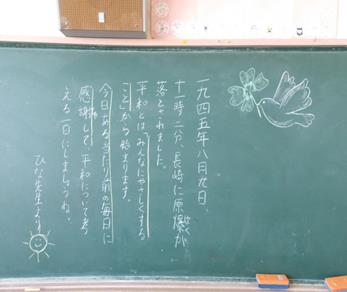 一九四五年八月九日、
十一時二分、長崎に原爆が
落とされました。
平和とは、「みんなにやさしくする
こと」から始まります。
今日ある当たり前の毎日に
感謝して、平和について考
える一日にしましょうね。
ひな先生より